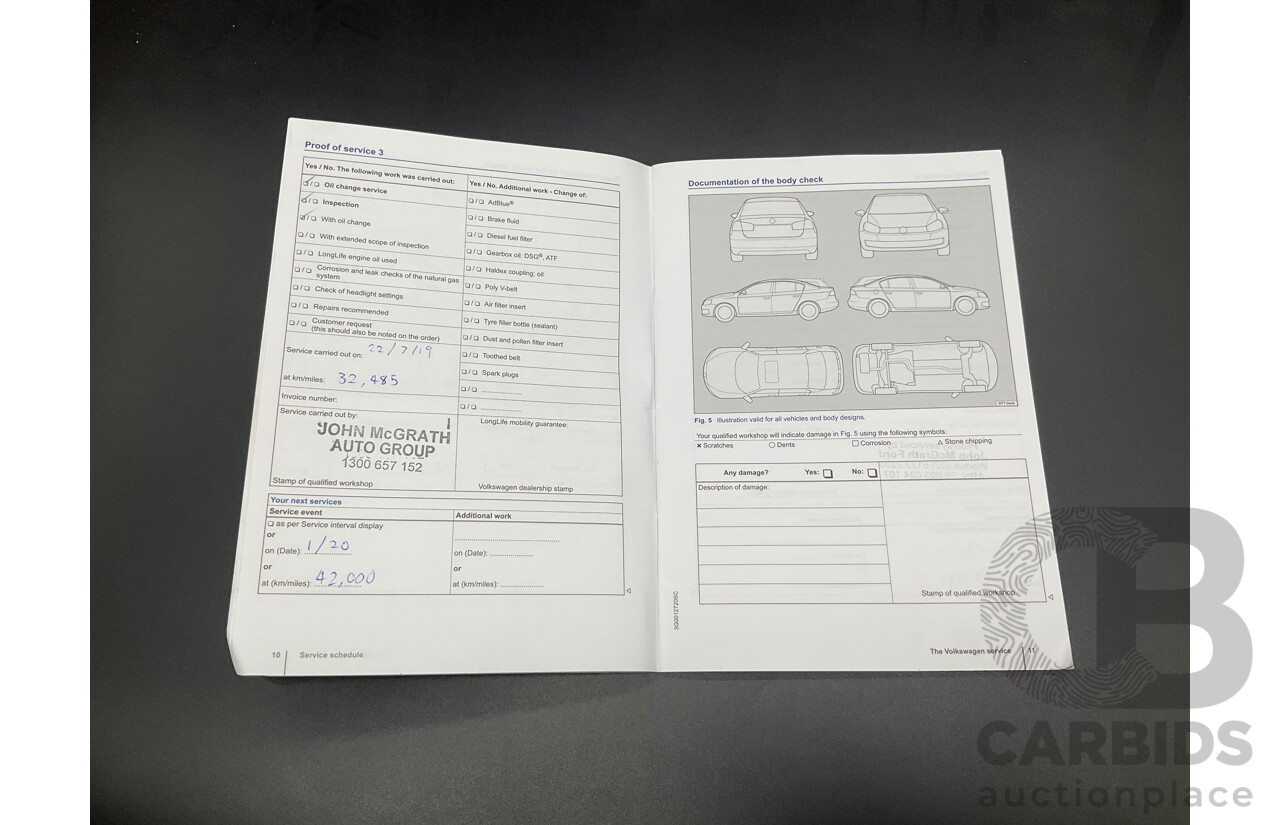 Proof of service 3
Yes / No. The following work was carried out:
☑/❑ Oil change service
☑/❑ Inspection
☑/❑ With oil change
❑/❑ With extended scope of inspection
❑/❑ LongLife engine oil used
❑/❑ Corrosion and leak checks of the natural gas
system
❑/❑ Check of headlight settings
❑/❑ Repairs recommended
❑/❑ Customer request
(this should also be noted on the order)
Service carried out on: 22/7/19
at km/miles: 32,485
Invoice number:
Service carried out by:
JOHN McGRATH
AUTO GROUP
1300 657 152
Stamp of qualified workshop
Yes / No. Additional work - Change of:
❑/❑ AdBlue®
❑/❑ Brake fluid
❑/❑ Diesel fuel filter
❑/❑ Gearbox oil: DSG®, ATF
❑/❑ Haldex coupling: oil
❑/❑ Poly V-belt
❑/❑ Air filter insert
❑/❑ Tyre filler bottle (sealant)
❑/❑ Dust and pollen filter insert
❑/❑ Toothed belt
❑/❑ Spark plugs
❑/❑ ....................
❑/❑ ....................
LongLife mobility guarantee:
Volkswagen dealership stamp
Your next services
Service event
❑ as per Service interval display
or
on (Date): 1/20
or
at (km/miles): 42,000
Additional work
on (Date): ....................
or
at (km/miles): ....................
10 Service schedule
Documentation of the body check
Fig. 5 Illustration valid for all vehicles and body designs.
Your qualified workshop will indicate damage in Fig. 5 using the following symbols:
× Scratches ○ Dents □ Corrosion △ Stone chipping
Any damage? Yes: ❑ No: ❑
Description of damage:
Stamp of qualified workshop
3G0012720SC
The Volkswagen service 11
CB
CARBIDS
auctionplace